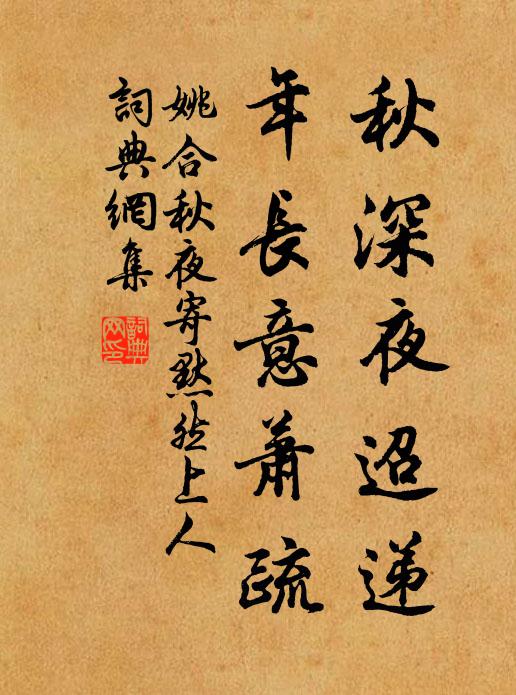 秋深夜迢遞
年長意蕭疏
姚合秋夜寄默然上人
詞典網集
詞典網印